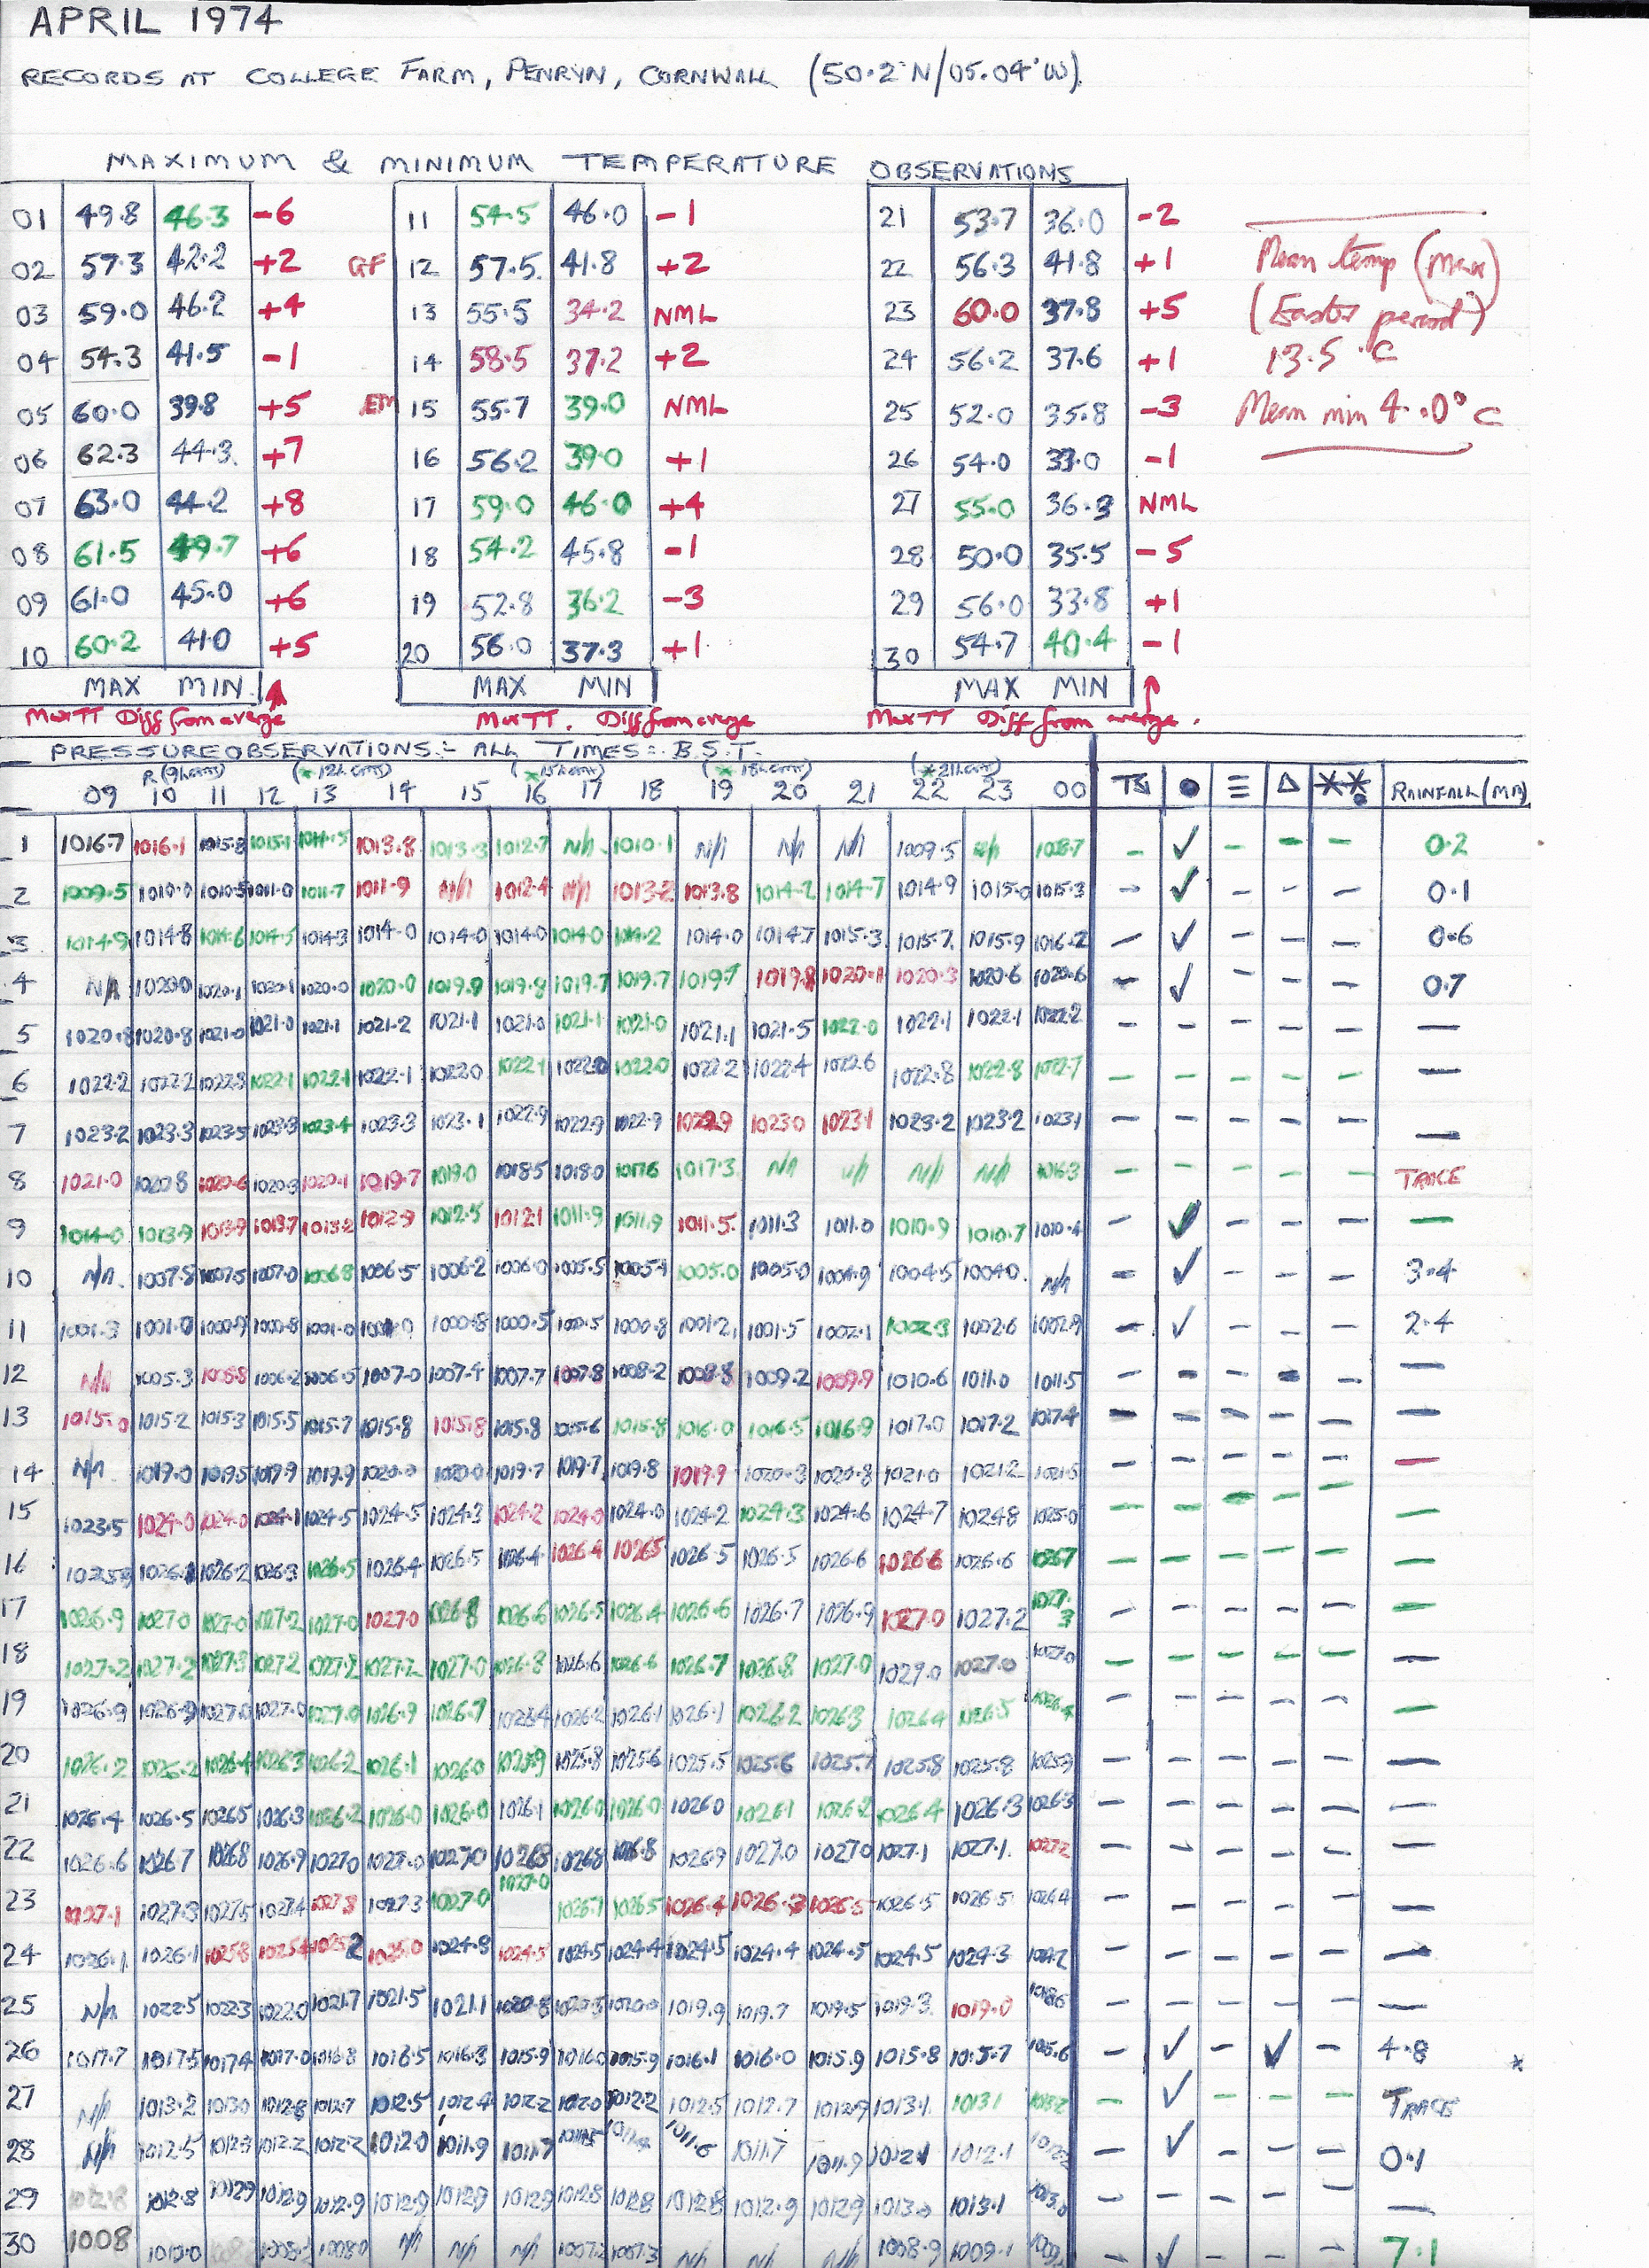 APRIL 1974
RECORDS AT COLLEGE FARM, PENRYN, CORNWALL (50.2°N/05.04°W)
MAXIMUM & MINIMUM TEMPERATURE OBSERVATIONS
01 49.8 46.3 -6 11 54.5 46.0 -1 21 53.7 36.0 -2
02 57.3 42.2 +2 GF 12 57.5 41.8 +2 22 56.3 41.8 +1 Mean temp (max)
03 59.0 46.2 +4 13 55.5 34.2 NML 23 60.0 37.8 +5 (Easter period)
04 54.3 41.5 -1 14 58.5 37.2 +2 24 56.2 37.6 +1 13.5°C
05 60.0 39.8 +5 EM 15 55.7 39.0 NML 25 52.0 35.8 -3 Mean min 4.0°C
06 62.3 44.3 +7 16 56.2 39.0 +1 26 54.0 33.0 -1
07 63.0 44.2 +8 17 59.0 46.0 +4 27 55.0 36.3 NML
08 61.5 49.7 +6 18 54.2 45.8 -1 28 50.0 35.5 -5
09 61.0 45.0 +6 19 52.8 36.2 -3 29 56.0 33.8 +1
10 60.2 41.0 +5 20 56.0 37.3 +1 30 54.7 40.4 -1
MAX MIN MAX MIN MAX MIN
MaxTT Diff from average MaxTT. Diff from average MaxTT Diff from average.
PRESSURE OBSERVATIONS:- ALL TIMES:- B.S.T.
R (9h GMT) (* 12h GMT) (* 15h GMT) (* 18h GMT) (* 21h GMT)
09 10 11 12 13 14 15 16 17 18 19 20 21 22 23 00 RAINFALL (MM)
1 1016.7 1016.1 1015.8 1015.1 1014.5 1013.8 1013.3 1012.7 N/A 1010.1 N/A N/A N/A 1009.5 N/A - ✓ - - - 0.2
2 1009.5 1010.0 1010.5 1011.0 1011.7 1011.9 N/A 1012.4 N/A 1013.2 1013.8 1014.2 1014.7 1014.9 1015.0 1015.3 - ✓ - - - 0.1
3 1014.9 1014.8 1014.6 1014.5 1014.3 1014.0 1014.0 1014.0 1014.0 1014.2 1014.0 1014.7 1015.3 1015.7 1015.9 1016.2 - ✓ - - - 0.6
4 N/A 1020.0 1020.1 1020.1 1020.0 1020.0 1019.9 1019.8 1019.7 1019.7 1019.7 1019.8 1020.1 1020.3 1020.6 1020.6 - ✓ - - - 0.7
5 1020.8 1020.8 1021.0 1021.0 1021.1 1021.2 1021.1 1021.0 1021.1 1021.0 1021.1 1021.5 1022.0 1022.1 1022.1 1022.2 - - - - - -
6 1022.2 1022.2 1022.3 1022.1 1022.1 1022.1 1022.0 1022.1 1022.0 1022.0 1022.2 1022.4 1022.6 1022.8 1022.8 1022.7 - - - - - -
7 1023.2 1023.3 1023.5 1023.3 1023.4 1023.3 1023.1 1022.9 1022.9 1022.9 1022.9 1023.0 1023.1 1023.2 1023.2 1023.1 - - - - - -
8 1021.0 1020.8 1020.6 1020.3 1020.1 1019.7 1019.0 1018.5 1018.0 1017.6 1017.3 N/A N/A N/A N/A 1016.3 - - - - - TRACE
9 1014.0 1013.9 1013.9 1013.7 1013.2 1012.9 1012.5 1012.1 1011.9 1011.9 1011.5 1011.3 1011.0 1010.9 1010.7 1010.4 - ✓ - - - -
10 N/A 1007.8 1007.5 1007.0 1006.8 1006.5 1006.2 1006.0 1005.5 1005.1 1005.0 1005.0 1004.9 1004.5 1004.0 N/A - ✓ - - - 3.4
11 1001.3 1001.0 1000.9 1000.8 1001.0 1000.8 1000.5 1000.5 1000.8 1001.2 1001.5 1002.1 1002.3 1002.6 1002.9 - ✓ - - - 2.4
12 N/A 1005.3 1005.8 1006.2 1006.5 1007.0 1007.4 1007.7 1007.8 1008.2 1008.8 1009.2 1009.9 1010.6 1011.0 1011.5 - - - - - -
13 1015.0 1015.2 1015.3 1015.5 1015.7 1015.8 1015.8 1015.8 1015.6 1015.8 1016.0 1016.5 1016.9 1017.0 1017.2 1017.4 - - - - - -
14 N/A 1019.0 1019.5 1019.9 1019.9 1020.0 1020.0 1019.7 1019.7 1019.8 1019.9 1020.3 1020.8 1021.0 1021.2 1021.5 - - - - - -
15 1023.5 1024.0 1024.0 1024.1 1024.5 1024.5 1024.3 1024.2 1024.0 1024.0 1024.2 1024.3 1024.6 1024.7 1024.8 1025.0 - - - - - -
16 1026.2 1026.3 1026.5 1026.4 1026.5 1026.4 1026.4 1026.5 1026.5 1026.5 1026.6 1026.6 1026.6 1026.7 - - - - - -
17 1026.9 1027.0 1027.0 1027.2 1027.0 1027.0 1026.8 1026.6 1026.5 1026.4 1026.6 1026.7 1026.9 1027.0 1027.2 1027.3 - - - - - -
18 1027.2 1027.2 1027.3 1027.2 1027.2 1027.2 1027.0 1026.8 1026.6 1026.6 1026.7 1026.8 1027.0 1027.0 1027.0 1027.0 - - - - - -
19 1026.9 1026.9 1027.0 1027.0 1027.0 1026.9 1026.7 1026.4 1026.2 1026.1 1026.1 1026.2 1026.3 1026.4 1026.5 1026.4 - - - - - -
20 1026.2 1026.2 1026.4 1026.3 1026.2 1026.1 1026.0 1025.9 1025.8 1025.6 1025.5 1025.6 1025.7 1025.8 1025.8 1025.9 - - - - - -
21 1026.4 1026.5 1026.5 1026.3 1026.2 1026.0 1026.0 1026.1 1026.0 1026.0 1026.0 1026.1 1026.2 1026.4 1026.3 1026.3 - - - - - -
22 1026.6 1026.7 1026.8 1026.9 1027.0 1027.0 1027.0 1026.8 1026.8 1026.8 1026.9 1027.0 1027.0 1027.1 1027.1 1027.2 - - - - - -
23 1027.1 1027.3 1027.5 1027.4 1027.3 1027.3 1027.0 1027.0 1026.7 1026.5 1026.4 1026.5 1026.5 1026.5 1026.4 - - - - - -
24 1026.1 1026.1 1025.8 1025.4 1025.2 1025.0 1024.8 1024.5 1024.5 1024.4 1024.5 1024.4 1024.5 1024.5 1024.3 1024.2 - - - - - -
25 N/A 1022.5 1022.3 1022.0 1021.7 1021.5 1021.1 1020.8 1020.0 1019.9 1019.7 1019.5 1019.3 1019.0 1018.6 - - - - - -
26 1017.7 1017.5 1017.4 1017.0 1016.8 1016.5 1016.3 1015.9 1016.0 1015.9 1016.1 1016.0 1015.9 1015.8 1015.7 1015.6 - ✓ - ✓ - 4.8 *
27 N/A 1013.2 1013.0 1012.8 1012.7 1012.5 1012.4 1012.2 1012.0 1012.2 1012.5 1012.7 1012.9 1013.1 1013.1 1013.2 - ✓ - - - TRACE
28 N/A 1012.5 1012.3 1012.2 1012.2 1012.0 1011.9 1011.7 1011.5 1011.6 1011.7 1011.9 1012.1 1012.1 1012.2 - ✓ - - - 0.1
29 1012.8 1012.8 1012.9 1012.9 1012.9 1012.9 1012.9 1012.9 1012.8 1012.8 1012.8 1012.9 1012.9 1013.0 1013.1 1013.0 - - - - - -
30 1008 1010.0 1008.2 1008.0 N/A N/A N/A 1007.2 1007.3 N/A N/A N/A 1008.9 1009.1 - ✓ - - - 7.1